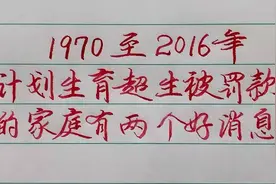 1970至2016年
计划生育超生被罚款
的家庭有两个好消息